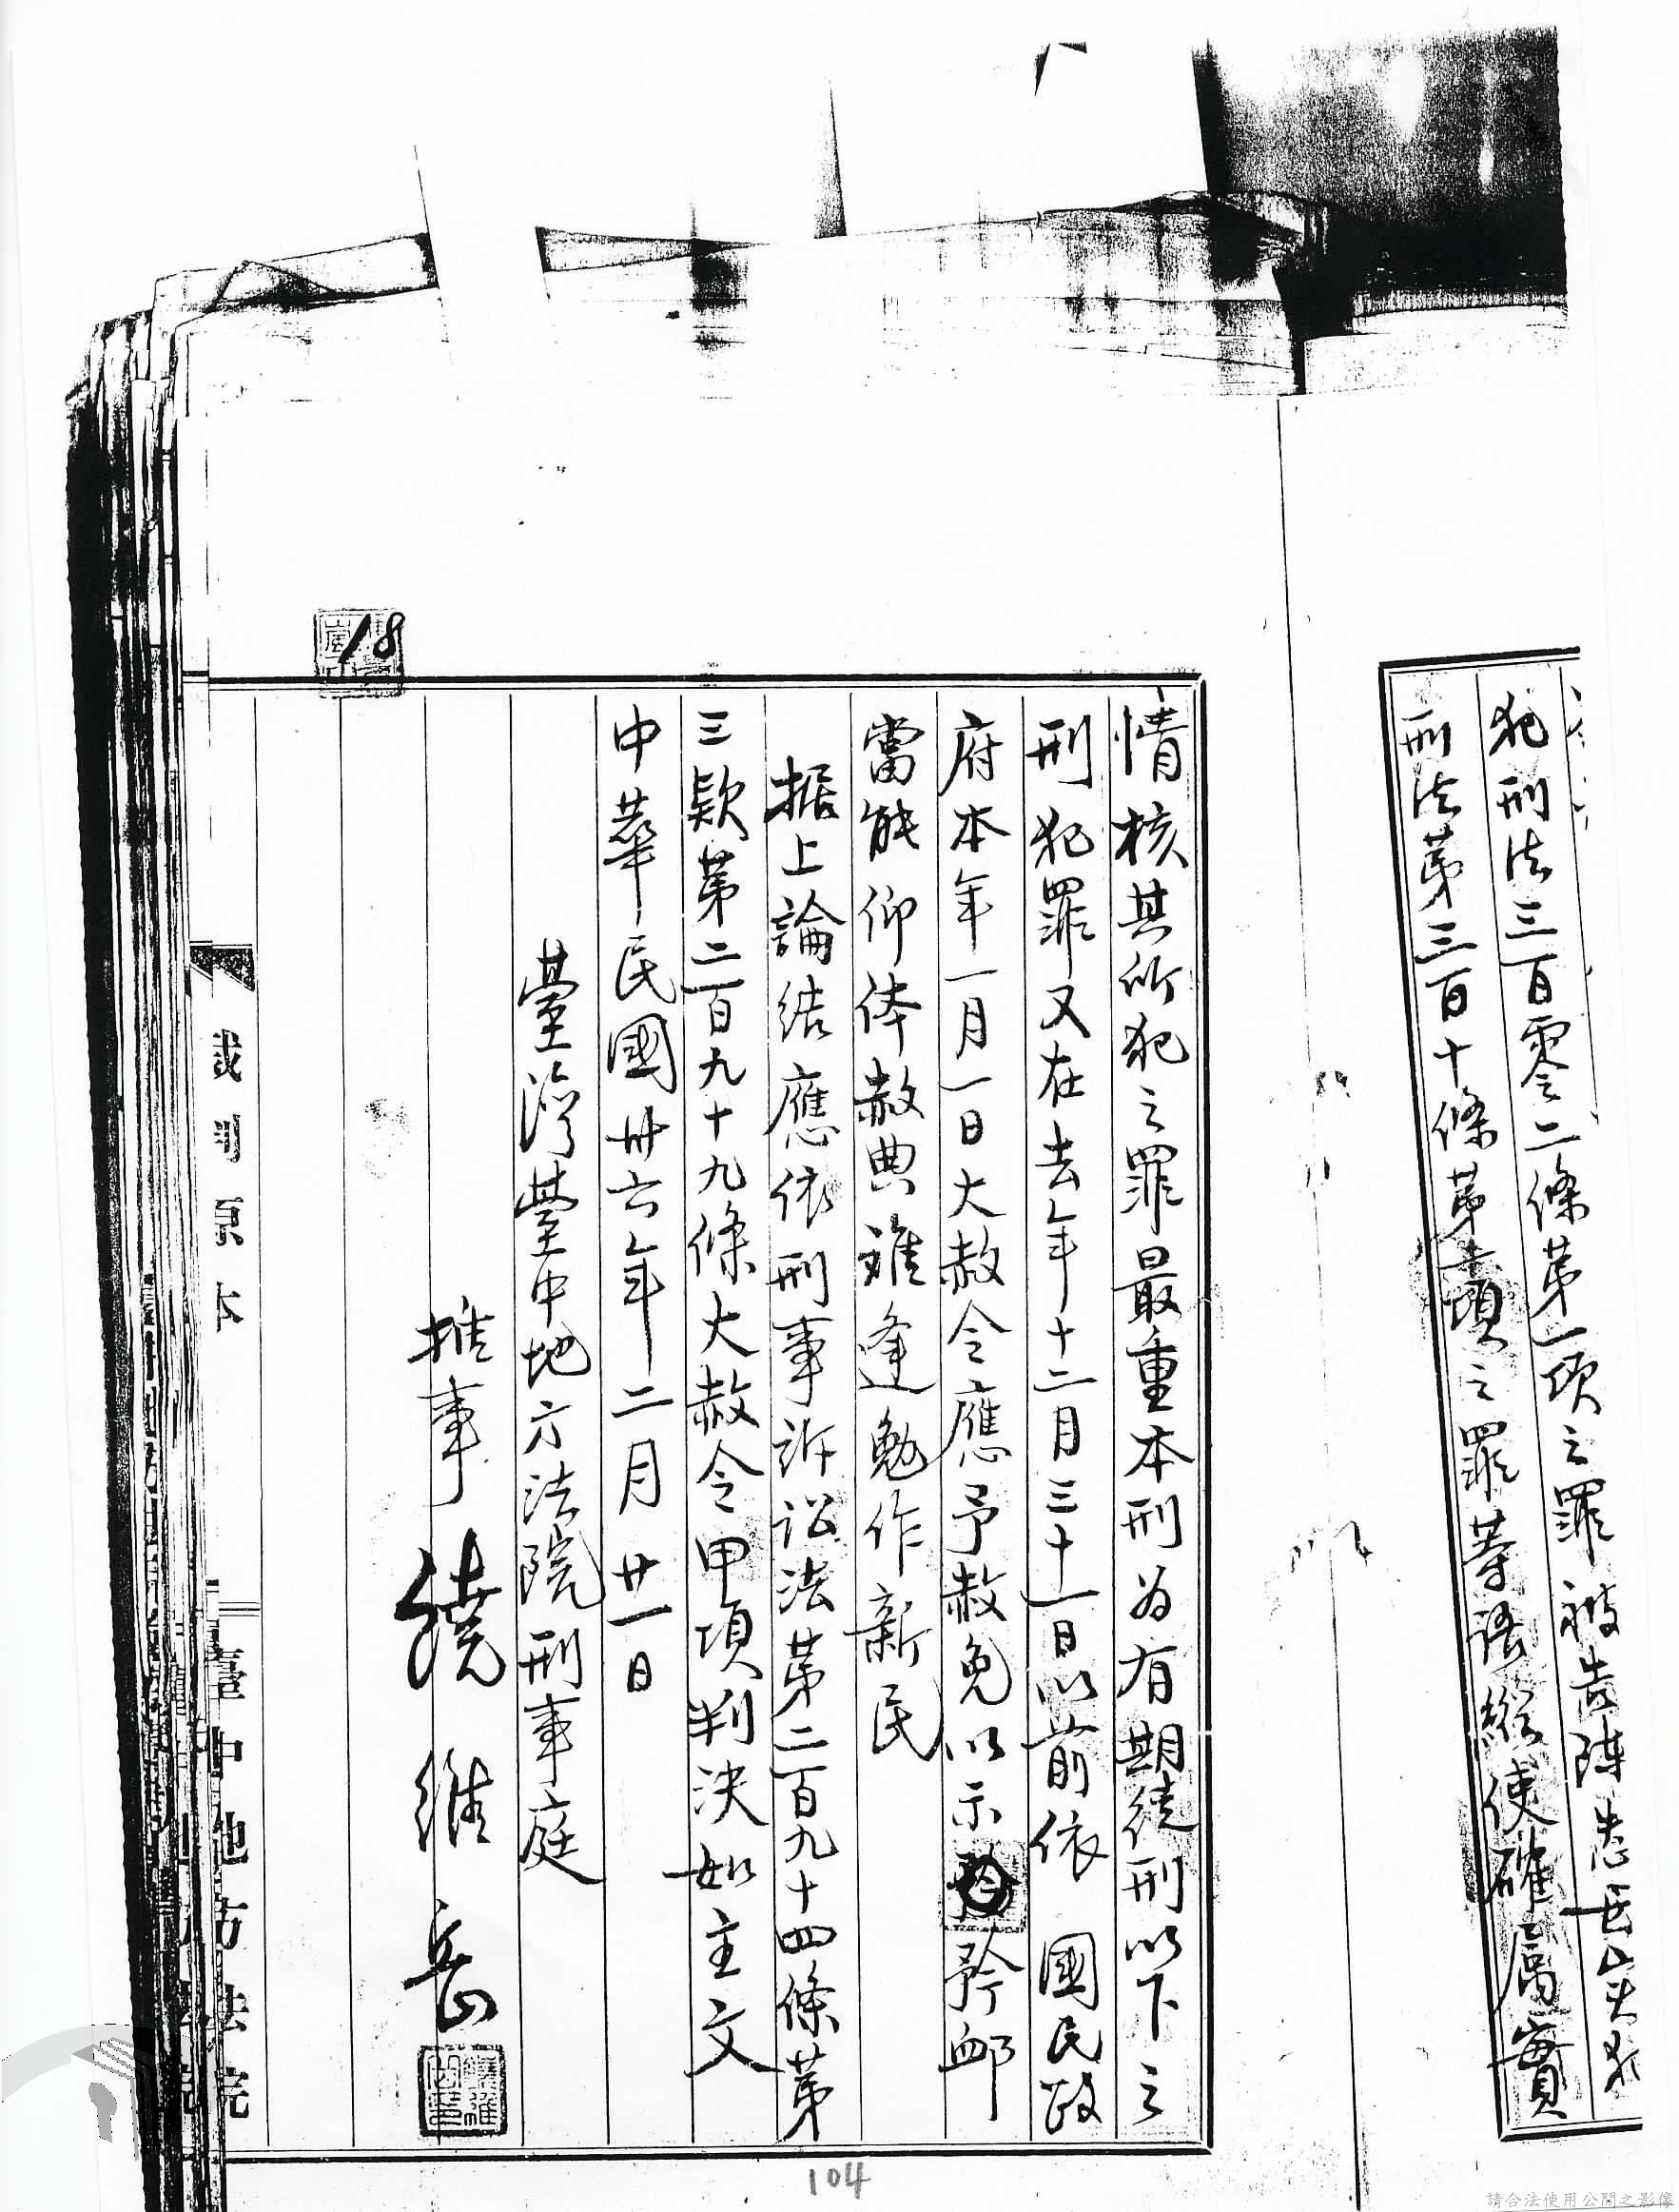 犯刑法三百零二條第一項之罪被告陳忠
刑法第三百十條第二項之罪等語縱使確屬實
情核其所犯之罪最重本刑為有期徒刑以下之
刑犯罪又在去年十二月三十一日以前依 國民政
府本年一月一日大赦令應予赦免以示矜卹
當能仰体赦典难逢勉作新民
据上論結應依刑事訴訟法第二百九十四條第
三款第二百九十九條大赦令甲項判決如主文
中華民國卅六年二月廿一日
臺灣臺中地方法院刑事庭
推事 饒維岳
18
裁判原本
臺中地方法院
104
請合法使用公開之影像